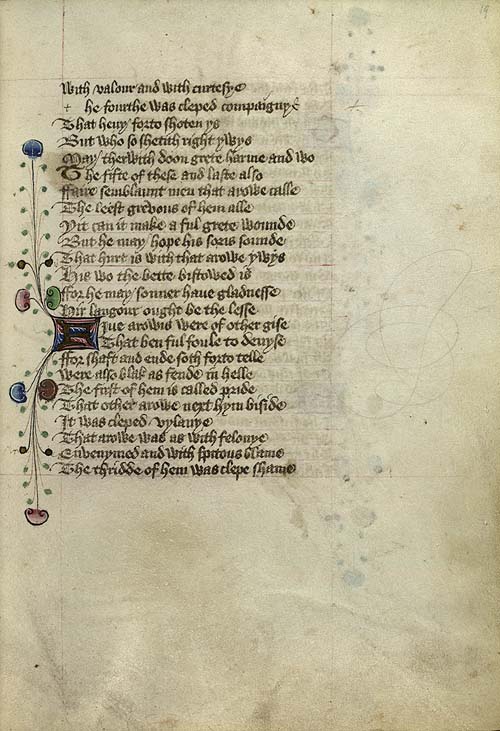 19
With valour and with curtesye
he fourthe was cleped compaignye
That heuy forto shoten ys
But who so shetith right ywys
May therwith doon grete harme and wo
The fifte of these and laste also
ffaire semblaunt men that arowe calle
The leest greuous of hem alle
Yit can it make a ful grete wounde
But he may hope his soris sounde
That hurt is with that arowe ywys
His wo the bette bistowed is
ffor he may sonner haue gladnesse
Hir langour ought be the lesse
Fiue arowis were of other gise
That ben ful foule to deuyse
ffor shaft and ende soth forto telle
were also blak as fende in helle
The first of hem is called pride
That other arowe next hym biside
It was cleped vylanye
That arowe was as with felonye
Envenymed and with spitous blame
The thridde of hem was clepe shame